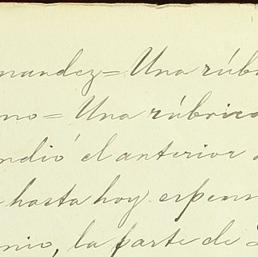 nandez = Una rúb
no = Una rúbrica
ndió el anterior
hasta hoy espen
nio, la parte de